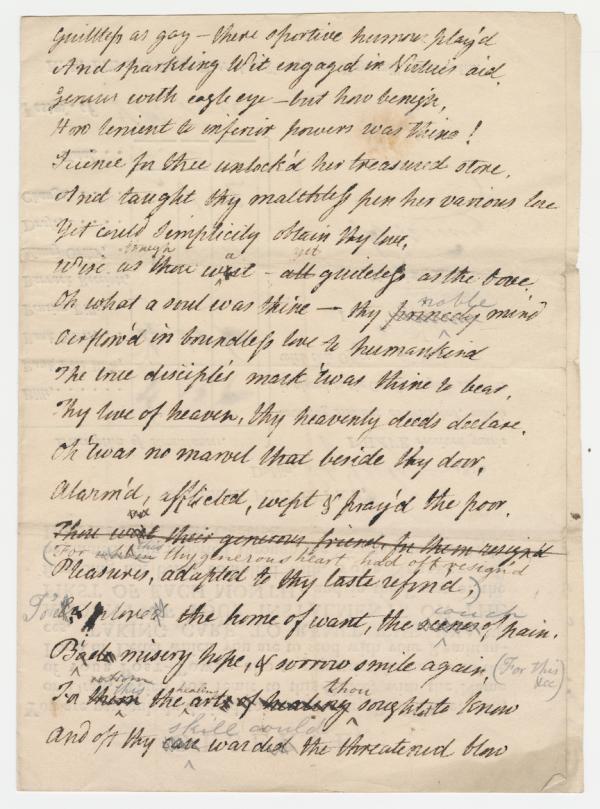 Guiltless as gay – there sportive humour play'd
And sparkling Wit engaged in Virtue's aid.
Genius with eagle eye – but how benign,
How lenient to inferior powers was thine!
Science for thee unlock'd her treasured store,
And taught thy matchless pen her various lore
Yet could Simplicity obtain thy love,
though a yet
Wise as thou wert – all guileless as the Dove,
noble
Oh what a soul was thine – thy mind
Oerflow'd in boundless love to humankind
The true disciple's mark 'twas thine to bear,
Thy love of heaven, thy heavenly deeds declare.
Oh 'twas no marvel that beside thy door,
Alarm'd, afflicted, wept & pray'd the poor.
Thou wert their generous friend for them resign'd
(For this thy generous heart had oft resign'd
Pleasures, adapted to thy taste refin'd,)
couch
To explore the home of want, the scenes of pain.
Bade misery hope, & sorrow smile again, (For this &c)
this healing thou
For them the arts of healing sought to know
skill could
And oft thy care warded the threatened blow